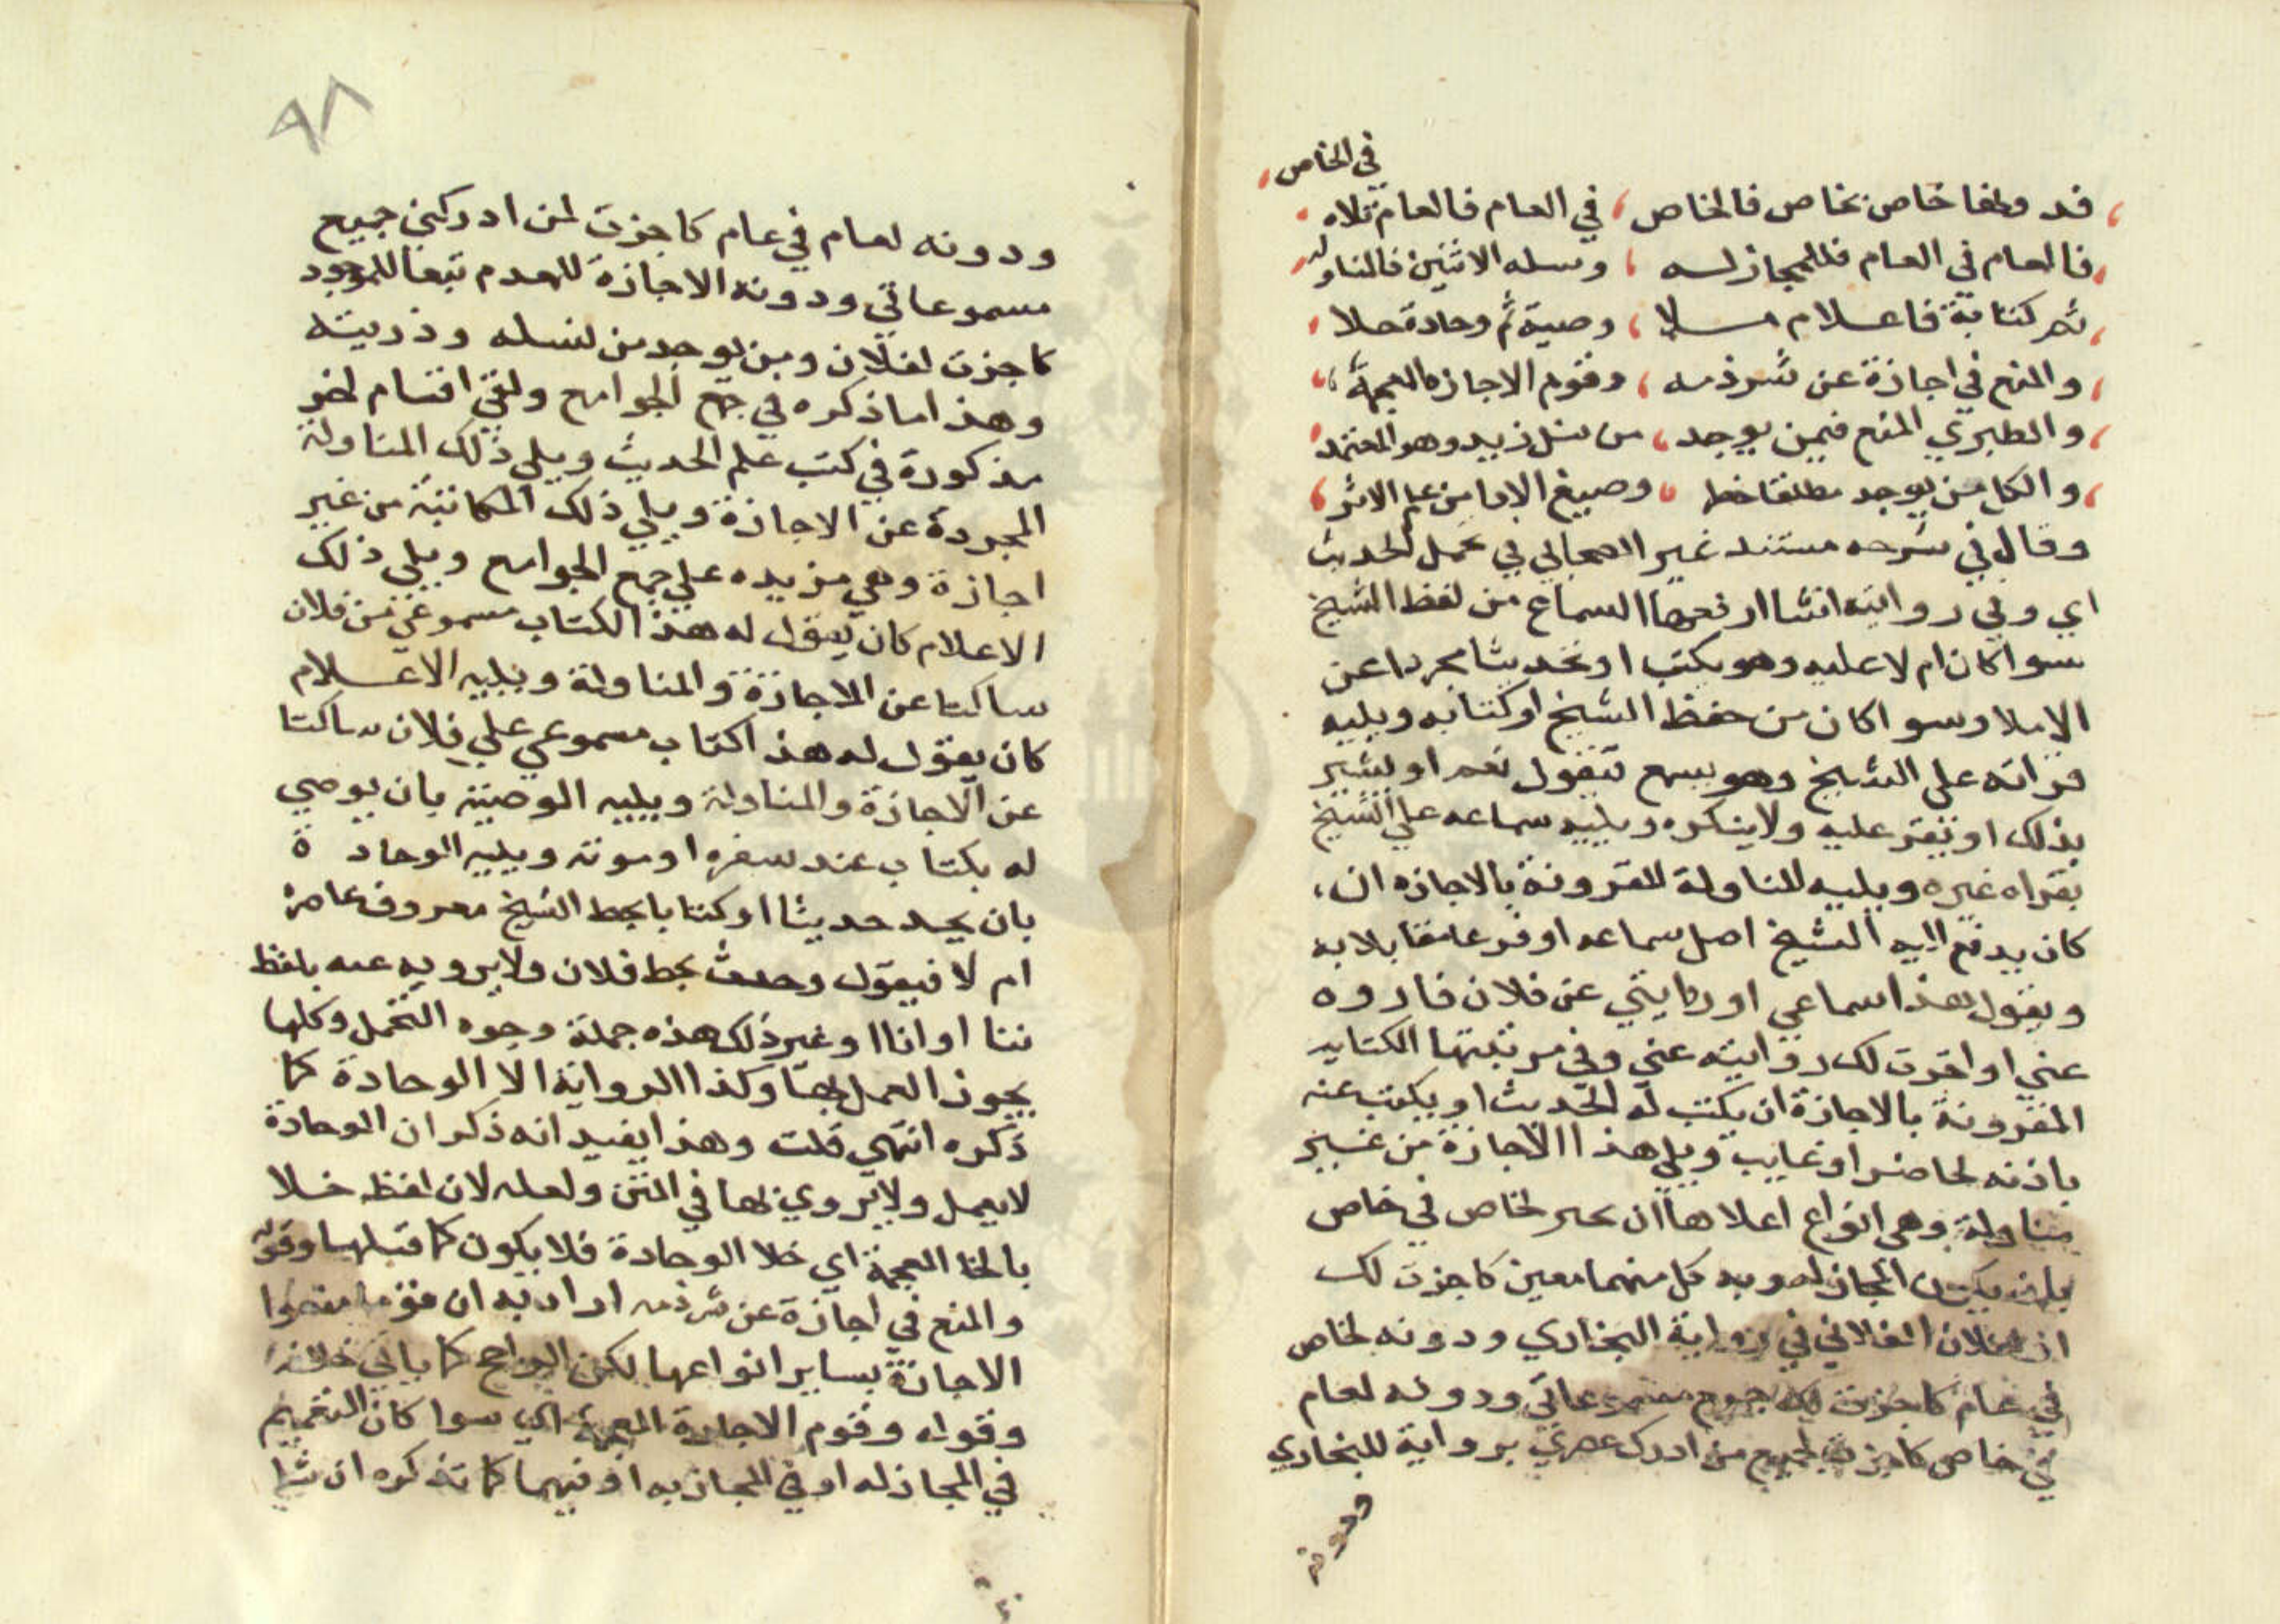 في الخاص
قد وطفا خاص بخاص فالخاص، في العام فالعام تلاه
فالعام في العام فللمجاز له، ونسله الاثنين فالمناوله
ثم كتابة فاعلام سلا، وصية ثم وحادة حلا
والمنع في اجازة عن شرذمه، وقوم الاجازه المعممة
والطبري المنع فيمن يوجد، من نسل زيد وهو المعتمد
والكل من يوجد مطلقا حظا، وصيغ الادا من علم الاثر
وقال في شرحه مستند غير الصحابي في تحمل الحديث
اي وفي روايته اشيا ارفعها السماع من لفظ الشيخ
سوا كان املا عليه وهو يكتب او تحديثا مجردا عن
الاملا وسوا كان من حفظ الشيخ او كتابه ويليه
قراته على الشيخ وهو يسمع فيقول نعم او يشير
بذلك او يقر عليه ولا ينكره ويليه سماعه على الشيخ
بقراه غيره ويليه المناولة المقرونة بالاجازه ان،
كان يدفع اليه الشيخ اصل سماعه او فرعا مقابلا به
ويقول هذا سماعي او روايتي عن فلان فاروه
عني او اجزت لك روايته عني وفي مرتبتها الكتابه
المقرونة بالاجازة ان يكتب له الحديث او يكتب عنه
باذنه لحاضر او غايب ويلي هذا الاجازة من غير
مناولة وهي انواع اعلاها ان يجيز لخاص في خاص
بان يكون المجاز له وبه كل منهما معين كاجزت لك
او لفلان الفلاني في رواية البخاري ودونه لخاص
في عام كاجزت لك جميع مسموعاتي ودونه لعام
في خاص كاجزت لجميع من ادرك عصري برواية للبخاري
ودونه
٩٨
ودونه لعام في عام كاجزت لمن ادركني جميع
مسموعاتي ودونه الاجازة للعدم تبعا للموجود
كاجزت لفلان ومن يوجد من نسله وذريته
وهذا ما ذكره في جمع الجوامع ولبقي اقسام اخر
مذكورة في كتب علم الحديث ويلي ذلك المناولة
المجردة عن الاجازة ويلي ذلك المكاتبة من غير
اجازة وهي مزيده على جمع الجوامع ويلي ذلك
الاعلام كان يقول له هذا الكتاب مسموعي من فلان
ساكتا عن الاجازة والمناولة ويليه الاعلام
كان يقول له هذا كتاب مسموعي علي فلان ساكتا
عن الاجازة والمناولة ويليه الوصية بان يوصي
له بكتاب عند سفره او موته ويليه الوحادة
بان يجد حديثا او كتابا بخط الشيخ معروف عاصره
ام لا فيقول وجدت بخط فلان ولا يرويه عنه بلفظ
ثنا او انا او غير ذلك هذه جملة وجوه التحمل وكلها
يجوز العمل بها وكذا الرواية الا الوحادة كما
ذكره انتهى قلت وهذا يفيد انه ذكر ان الوحادة
لا يعمل ولا يروي بها في المتن ولعله لان لفظه خلا
بالخا المعجمة اي خلا الوحادة فلا يكون كما قبلها وقوله
والمنع في اجازة عن شرذمه اراد به ان قوما منعوا
الاجازة بساير انواعها لكن الراجح كما ياتي خلافه
وقوله وقوم الاجازة المعممة اي سوا كان التعميم
في المجاز له او في المجاز به او فيهما كما تذكره ان شا